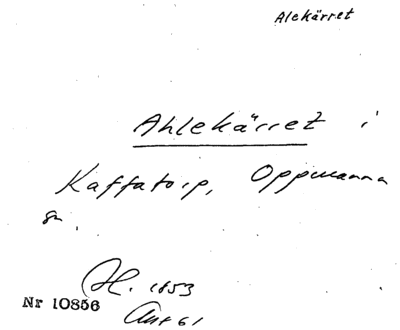 Alekärret
Ahlekärret i
Kaffatorp, Oppmanna
sn.
H. 1853
Nr 10856